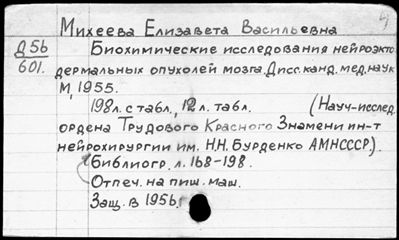 Михеева Елизавета Васильевна
Д56
601.
Биохимические исследования нейроэкто
дермальных опухолей мозга. Дисс. канд. мед. наук
М, 1955.
198 л. с табл., 12 л. табл. (Науч-исслед.
ордена Трудового Красного Знамени ин-т
нейрохирургии им. Н.Н. Бурденко АМНСССР.).
Библиогр. л. 168-198.
Отпеч. на пиш. маш.
Защ. в 1956.